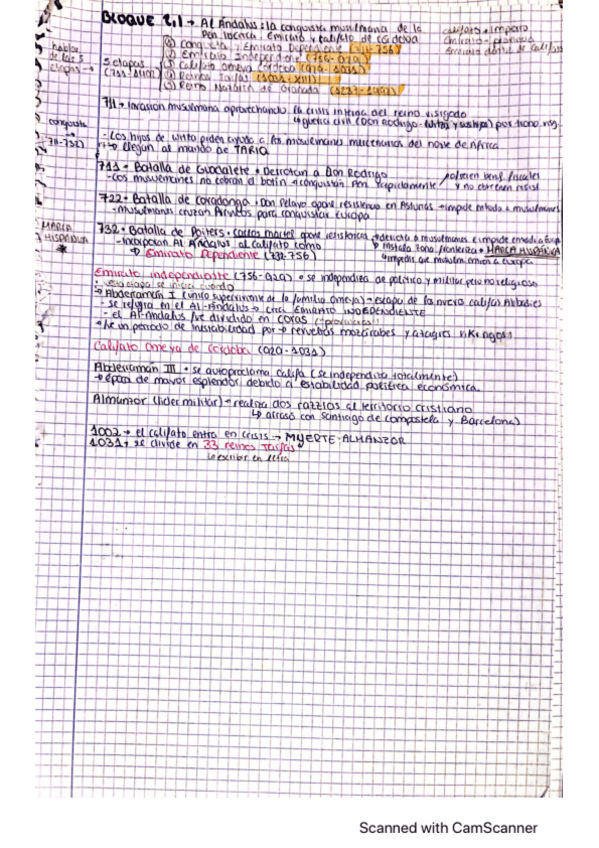 BLOQUE 2.1 → Al Ándalus: la conquista musulmana de la
Pen. Iberica. Emirato y califato de Córdoba
califato = Imperio
Emirato dentro de califato
hablar de las 5 etapas →
5 etapas (711-1492)
① Conquista y Emirato Dependiente (711-756)
② Emirato Independiente (756-929)
③ Califato Omeya Córdoba (929-1031)
④ Reinos Taifas (1031-XIII)
⑤ Reino Nazarí de Granada (1237-1492)
711 → Invasión musulmana aprovechando la crisis interna del reino visigodo
↳ guerra civil (Don Rodrigo - Witiza y sus hijos) por trono visig.
conquista
711-732)
- Los hijos de Witiza piden ayuda a los musulmanes mercenarios del norte de África
↳ llegan al mando de TARIQ
711 • Batalla de Guadalete • Derrotan a Don Rodrigo
- Los musulmanes no cobran el botín → conquistan Pen. rápidamente
722 • Batalla de Covadonga • Don Pelayo opone resistencia en Asturias → impide entrada a musulmanes
- Musulmanes cruzan Pirineos para conquistar Europa
MARCA HISPÁNICA *
732 • Batalla de Poitiers • Carlos Martel opone resistencia → derrota a musulmanes e impide entrada Europa
↳ Instala zona fronteriza • MARCA HISPÁNICA
- Incorporan Al Ándalus al califato como
↳ Emirato Dependiente (732-756)
Emirato independiente (756-929) • se independiza de político y militar pero no religioso
• esta etapa se inicia cuando
→ Abderramán I (único superviviente de la familia omeya) → escapa de la nueva califa Abbasíes
- se refugia en el Al-Ándalus → crea EMIRATO INDEPENDIENTE
- el Al-Ándalus fue dividido en CORAS ("provincias")
• fue un período de inestabilidad por → revueltas mozárabes y ataques vikingos
Califato Omeya de Córdoba (929-1031)
Abderramán III • se autoproclama califa (se independiza totalmente)
→ época de mayor esplendor debido a estabilidad política económica.
Almanzor (líder militar) → realiza dos razzias al territorio cristiano
↳ arrasó con Santiago de compostela y Barcelona)
1002 → el califato entra en crisis → MUERTE-ALMANZOR
1031 → se divide en 33 reinos Taifas
↳ escribir en letra
Scanned with CamScanner